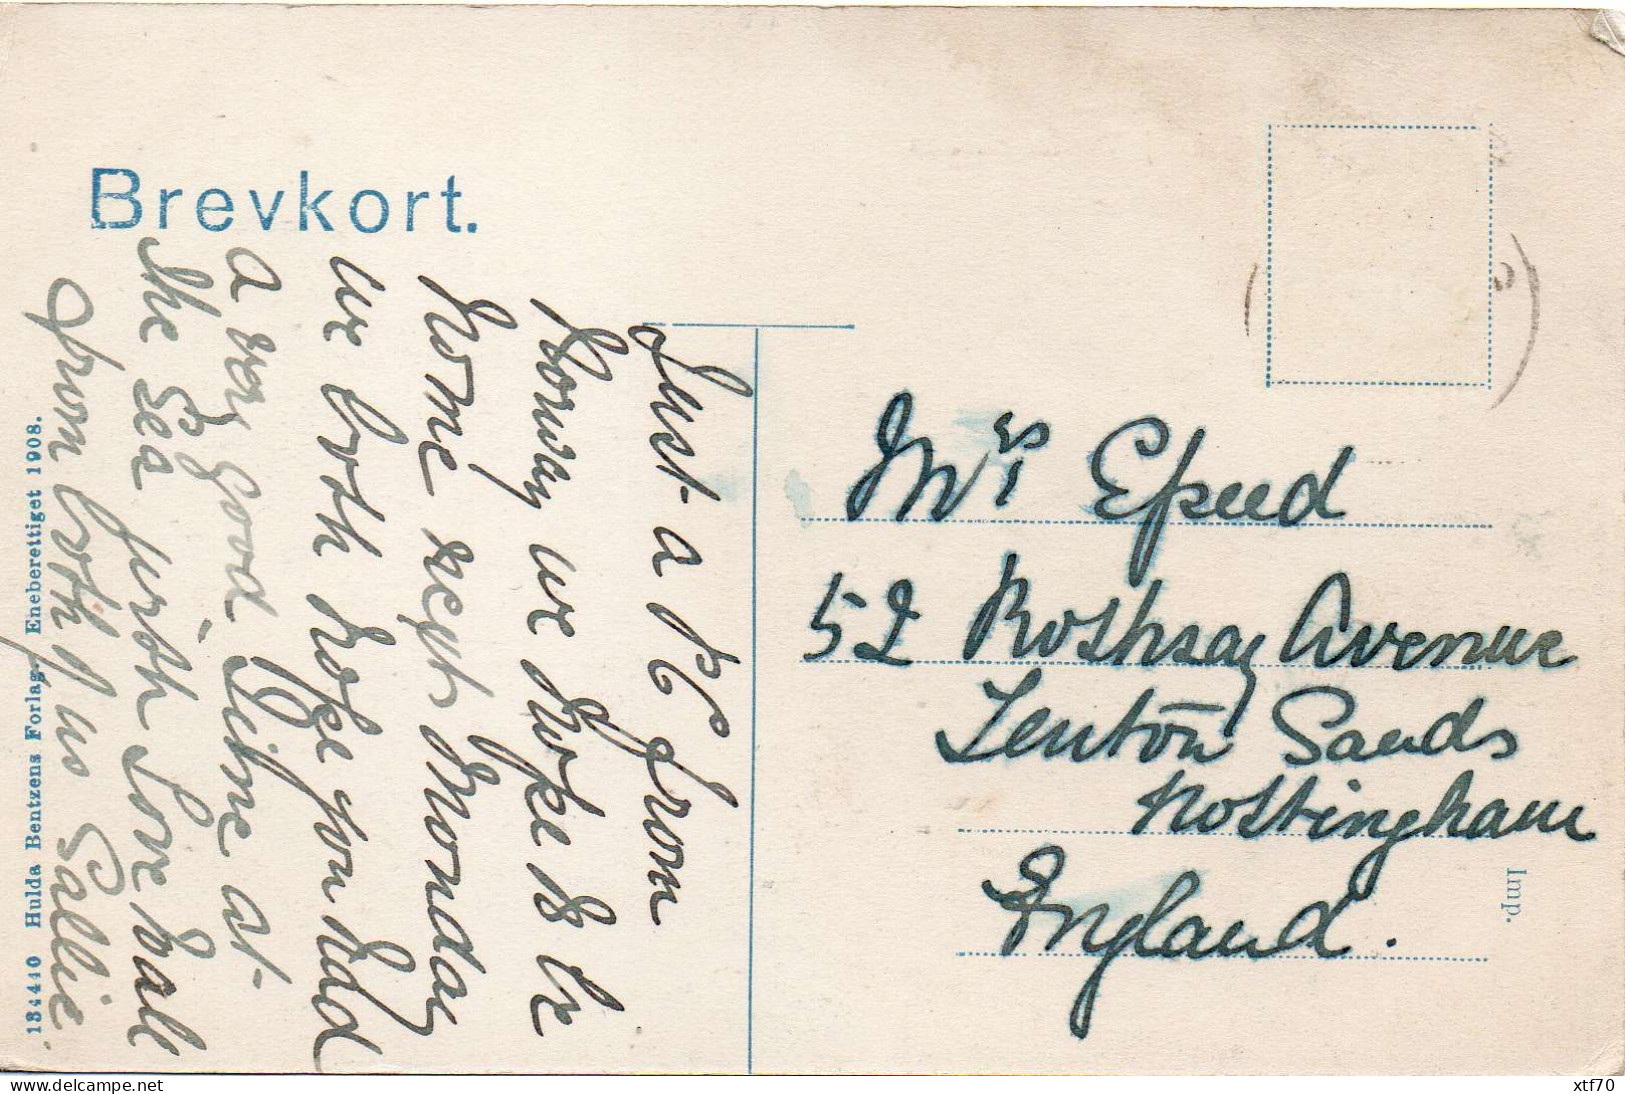 Brevkort.
Just a PC from
Norway we hope to be
home next Monday
we both hope you had
a very Good Time at
the Sea with Love to all
from both of us Sallie.
134440 Hulda Bentzens Forlag. Eneberettiget 1908.
Mrs Speed
52 Rothsay Avenue
Lenton Sands
Nottingham
England.
Imp.
delcampe.net
xtf70